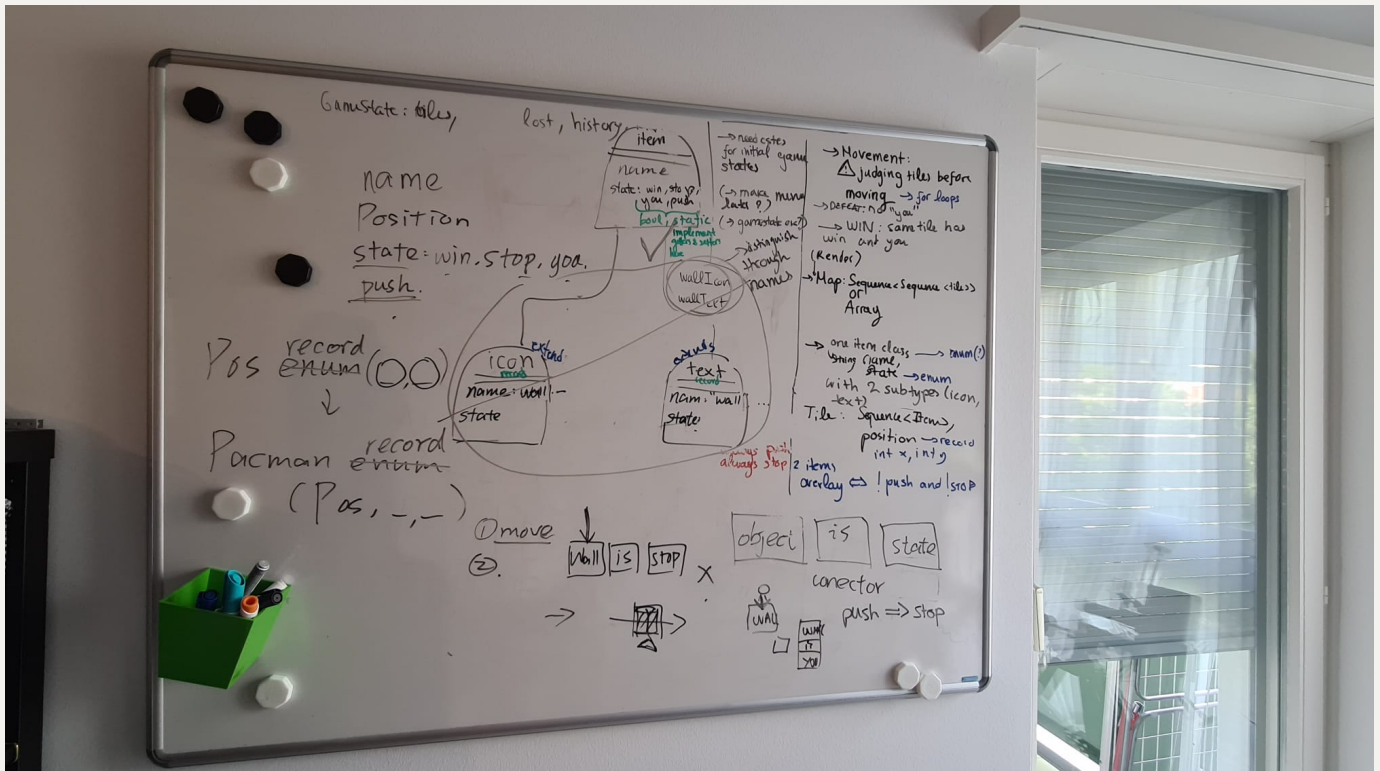 GameState: tiles,
lost, history, ....
name
Position
state: win, stop, you,
push.
Pos record
enum
↓
Pacman record
enum
(Pos, _, _)
item
name
state: win, stop,
you, push
bool, static
implement
here
wallIcon
wallText
→ distinguish
names
icon
record
name: wall
state
text
record
nam: "wall
state
...
always stop
→ need
for initial game
states
→ Movement:
⚠ judging tiles before
moving → for loops
→ DEFEAT: no "you"
→ WIN: same tile has
win and you
(Render)
→ Map: Sequence<Sequence<tiles>>
or
Array
→ one item class → enum(!)
string name,
state → enum
with 2 subtypes (icon,
text)
Tile: Sequence<Items>,
position → record
int x, int y
2 items
overlay ⇔ ! push and !stop
① move
②.
Wall is stop
x
object is state
conector
push => stop
WAL
IS
YOU